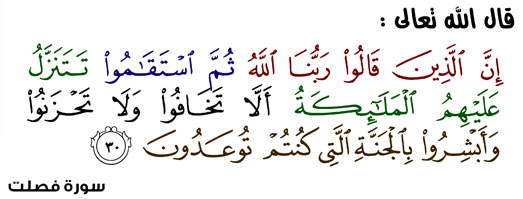 قال الله تعالى :
إِنَّ ٱلَّذِينَ قَالُوا۟ رَبُّنَا ٱللَّهُ ثُمَّ ٱسْتَقَـٰمُوا۟ تَتَنَزَّلُ
عَلَيْهِمُ ٱلْمَلَـٰٓئِكَةُ أَلَّا تَخَافُوا۟ وَلَا تَحْزَنُوا۟
وَأَبْشِرُوا۟ بِٱلْجَنَّةِ ٱلَّتِى كُنتُمْ تُوعَدُونَ ٣٠
سورة فصلت